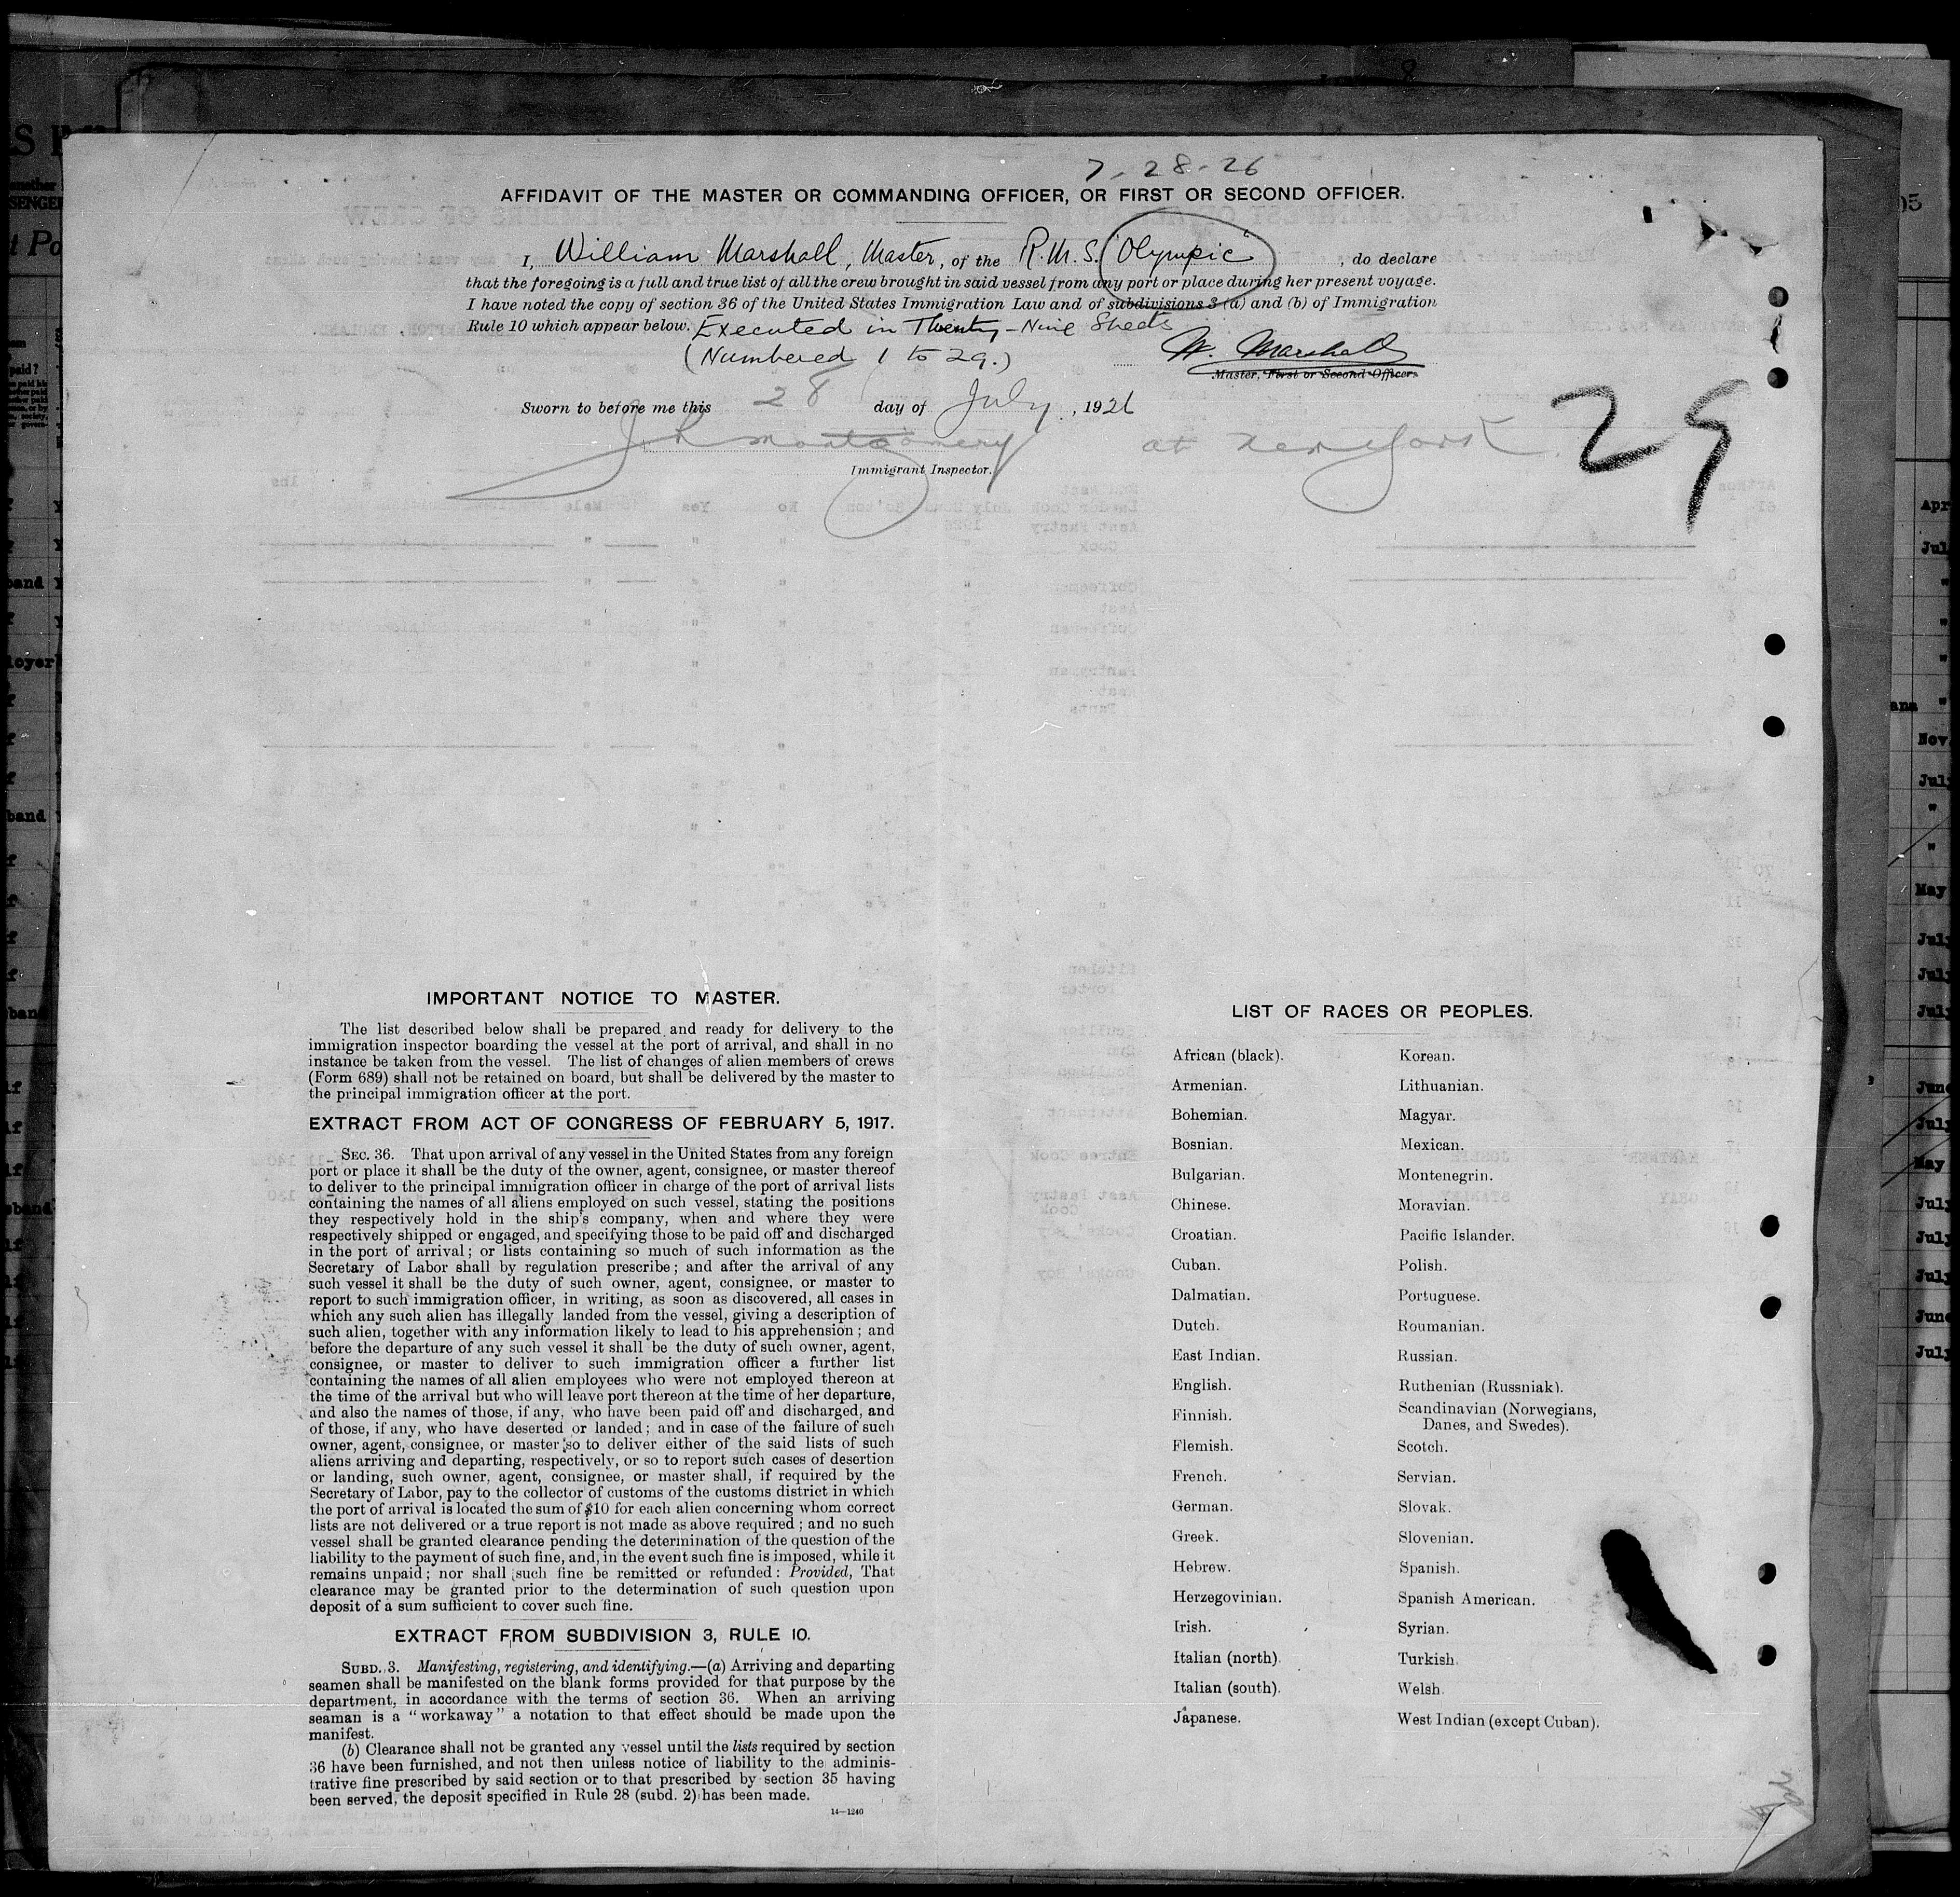 7-28-26
AFFIDAVIT OF THE MASTER OR COMMANDING OFFICER, OR FIRST OR SECOND OFFICER.
I, William Marshall, Master, of the R.M.S. "Olympic", do declare
that the foregoing is a full and true list of all the crew brought in said vessel from any port or place during her present voyage.
I have noted the copy of section 36 of the United States Immigration Law and of subdivisions 3 (a) and (b) of Immigration
Rule 10 which appear below. Executed in Twenty-Nine Sheets
(Numbered 1 to 29.)
W. Marshall
Master, First or Second Officer.
Sworn to before me this 28 day of July, 1926
29
J R Montgomery at New York
Immigrant Inspector.
IMPORTANT NOTICE TO MASTER.
The list described below shall be prepared and ready for delivery to the
immigration inspector boarding the vessel at the port of arrival, and shall in no
instance be taken from the vessel. The list of changes of alien members of crews
(Form 689) shall not be retained on board, but shall be delivered by the master to
the principal immigration officer at the port.
EXTRACT FROM ACT OF CONGRESS OF FEBRUARY 5, 1917.
SEC. 36. That upon arrival of any vessel in the United States from any foreign
port or place it shall be the duty of the owner, agent, consignee, or master thereof
to deliver to the principal immigration officer in charge of the port of arrival lists
containing the names of all aliens employed on such vessel, stating the positions
they respectively hold in the ship's company, when and where they were
respectively shipped or engaged, and specifying those to be paid off and discharged
in the port of arrival; or lists containing so much of such information as the
Secretary of Labor shall by regulation prescribe; and after the arrival of any
such vessel it shall be the duty of such owner, agent, consignee, or master to
report to such immigration officer, in writing, as soon as discovered, all cases in
which any such alien has illegally landed from the vessel, giving a description of
such alien, together with any information likely to lead to his apprehension; and
before the departure of any such vessel it shall be the duty of such owner, agent,
consignee, or master to deliver to such immigration officer a further list
containing the names of all alien employees who were not employed thereon at
the time of the arrival but who will leave port thereon at the time of her departure,
and also the names of those, if any, who have been paid off and discharged, and
of those, if any, who have deserted or landed; and in case of the failure of such
owner, agent, consignee, or master so to deliver either of the said lists of such
aliens arriving and departing, respectively, or so to report such cases of desertion
or landing, such owner, agent, consignee, or master shall, if required by the
Secretary of Labor, pay to the collector of customs of the customs district in which
the port of arrival is located the sum of $10 for each alien concerning whom correct
lists are not delivered or a true report is not made as above required; and no such
vessel shall be granted clearance pending the determination of the question of the
liability to the payment of such fine, and, in the event such fine is imposed, while it
remains unpaid; nor shall such fine be remitted or refunded: Provided, That
clearance may be granted prior to the determination of such question upon
deposit of a sum sufficient to cover such fine.
EXTRACT FROM SUBDIVISION 3, RULE 10.
SUBD. 3. Manifesting, registering, and identifying.—(a) Arriving and departing
seamen shall be manifested on the blank forms provided for that purpose by the
department, in accordance with the terms of section 36. When an arriving
seaman is a "workaway" a notation to that effect should be made upon the
manifest.
(b) Clearance shall not be granted any vessel until the lists required by section
36 have been furnished, and not then unless notice of liability to the adminis-
trative fine prescribed by said section or to that prescribed by section 35 having
been served, the deposit specified in Rule 28 (subd. 2) has been made.
14—1240
LIST OF RACES OR PEOPLES.
African (black).
Armenian.
Bohemian.
Bosnian.
Bulgarian.
Chinese.
Croatian.
Cuban.
Dalmatian.
Dutch.
East Indian.
English.
Finnish.
Flemish.
French.
German.
Greek.
Hebrew.
Herzegovinian.
Irish.
Italian (north).
Italian (south).
Japanese.
Korean.
Lithuanian.
Magyar.
Mexican.
Montenegrin.
Moravian.
Pacific Islander.
Polish.
Portuguese.
Roumanian.
Russian.
Ruthenian (Russniak).
Scandinavian (Norwegians,
Danes, and Swedes).
Scotch.
Servian.
Slovak.
Slovenian.
Spanish.
Spanish American.
Syrian.
Turkish.
Welsh.
West Indian (except Cuban).